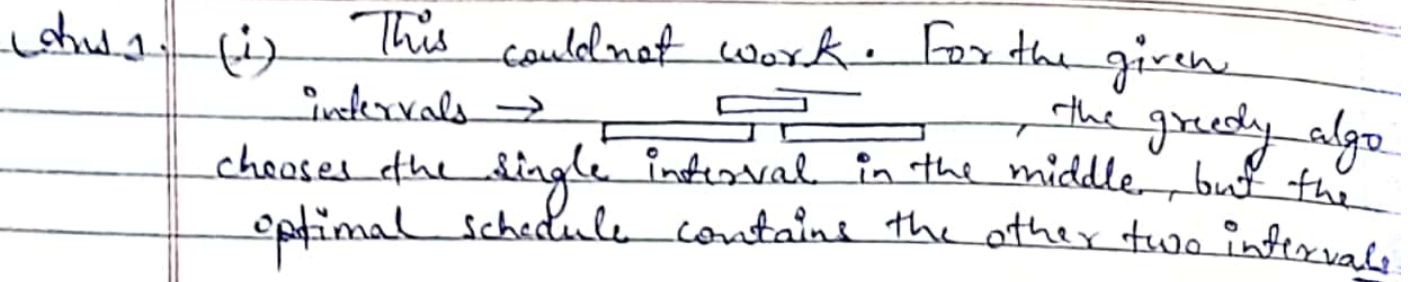 Ans 1. (i) This couldnot work. For the given
intervals → , the greedy algo
chooses the single interval in the middle, but the
optimal schedule contains the other two intervals